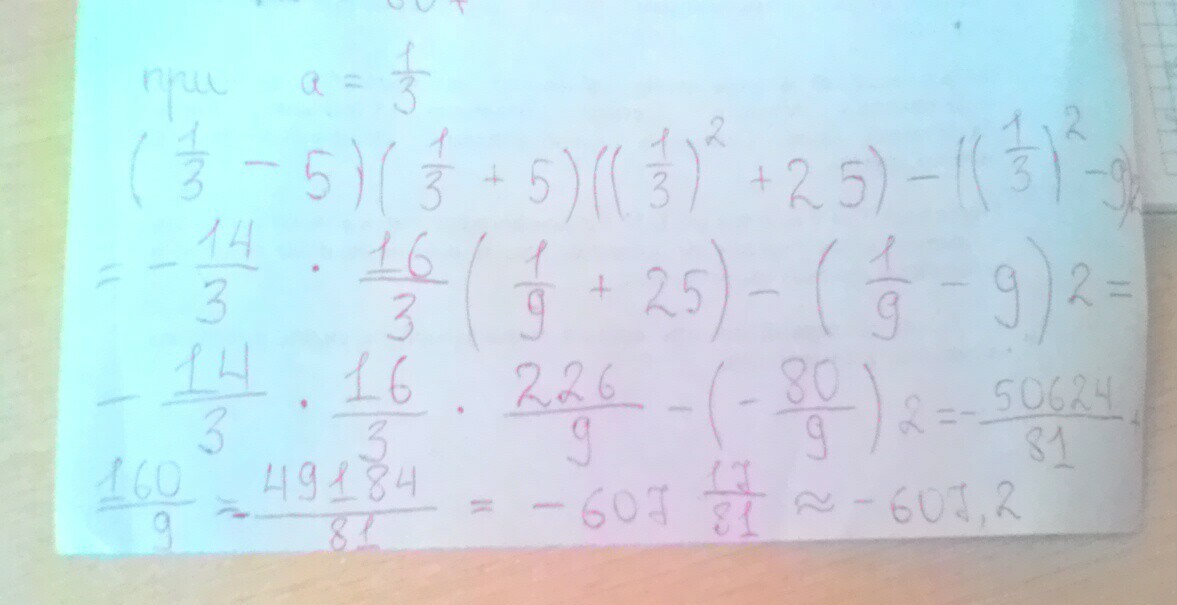 при a = 1/3
(1/3 - 5)(1/3 + 5)((1/3)² + 25) - ((1/3)² - 9)
= - 14/3 · 16/3 (1/9 + 25) - (1/9 - 9) 2 =
- 14/3 · 16/3 · 226/9 - (- 80/9) 2 = - 50624/81
160/9 = - 49184/81 = - 607 17/81 ≈ - 607,2